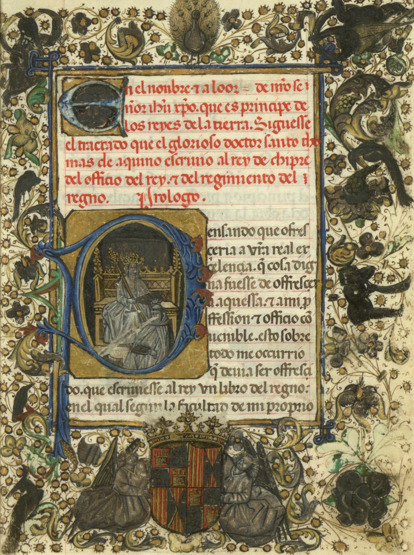 En el nonbre & a loor de n̄ro se
ñor ih̄u xp̄o. que es principe de
los reyes de la tierra. Siguesse
el tractado que el glorioso doctor santo tho
mas de aquino escriuio al rey de chipre
del officio del rey. & del regimiento del
regno. Prologo.
Pensando que ofres
ceria a v̄ra real ex
celencia. q̄ cosa dig
na fuesse de offrescer
a aquessa. & a mi p
ffession & officio cō
uenible. esto sobre
todo me occurrio
q̄ deuia ser offresçi
do. que escriuiesse al rey vn libro del regno:
en el qual segun la facultad de mi proprio